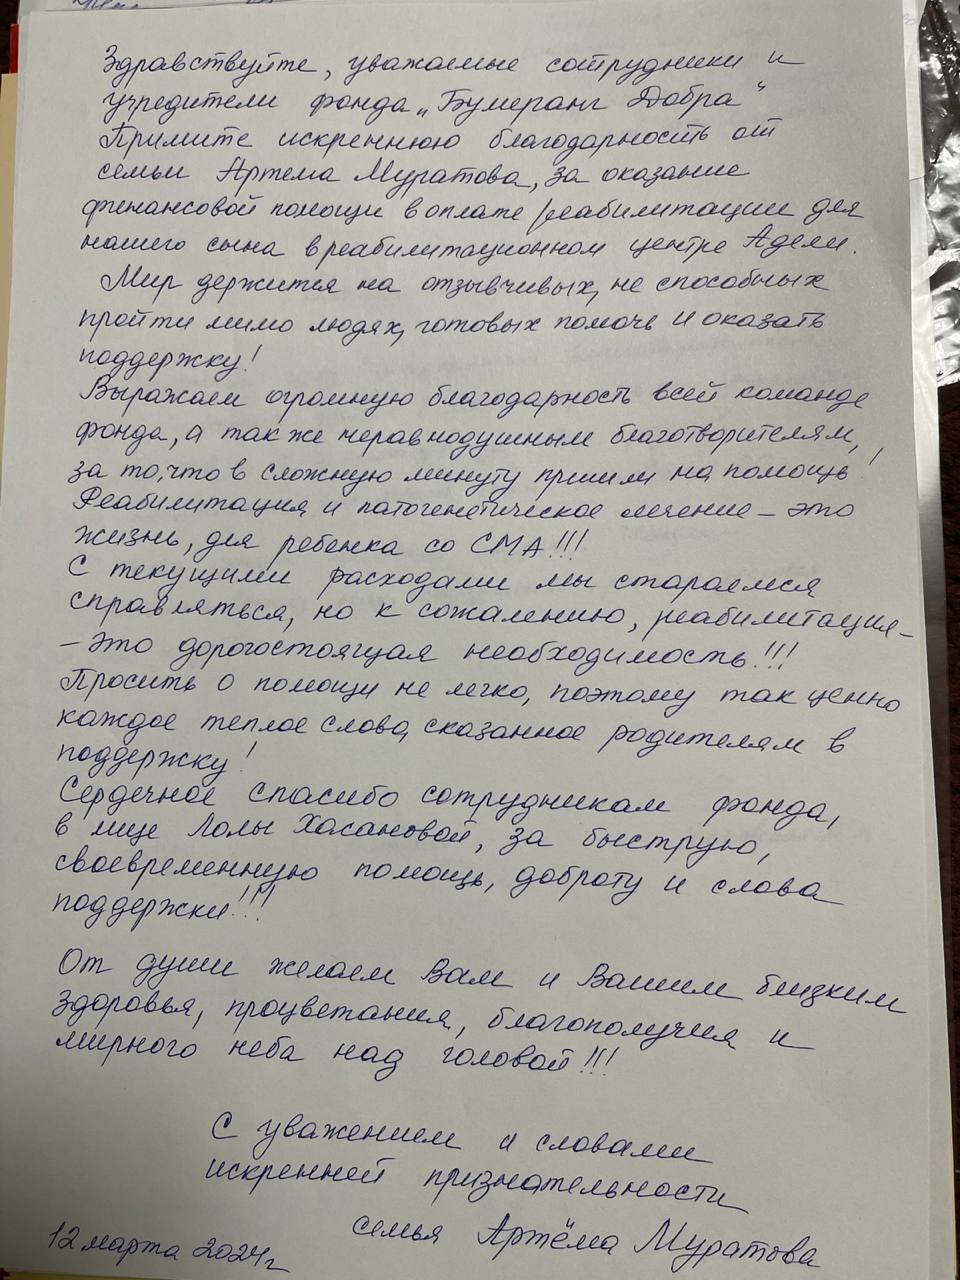 Здравствуйте, уважаемые сотрудники и
учредители фонда „Бумеранг Добра“
Примите искреннюю благодарность от
семьи Артема Муратова, за оказание
финансовой помощи в оплате реабилитации для
нашего сына в реабилитационном центре Адели.
Мир держится на отзывчивых, не способных
пройти мимо людях, готовых помочь и оказать
поддержку!
Выражаем огромную благодарность всей команде
фонда, а так же неравнодушным благотворителям,
за то, что в сложную минуту пришли на помощь!
Реабилитация и патогенетическое лечение – это
жизнь, для ребенка со СМА!!!
С текущими расходами мы стараемся
справляться, но к сожалению, реабилитация –
– это дорогостоящая необходимость!!!
Просить о помощи не легко, поэтому так ценно
каждое теплое слово, сказанное родителям в
поддержку!
Сердечное спасибо сотрудникам фонда,
в лице Лолы Хасановой, за быструю,
своевременную помощь, доброту и слова
поддержки!!!
От души желаем Вам и Вашим близким
здоровья, процветания, благополучия и
мирного неба над головой!!!
С уважением и словами
искренней признательности
семья Артёма Муратова
12 марта 2024г